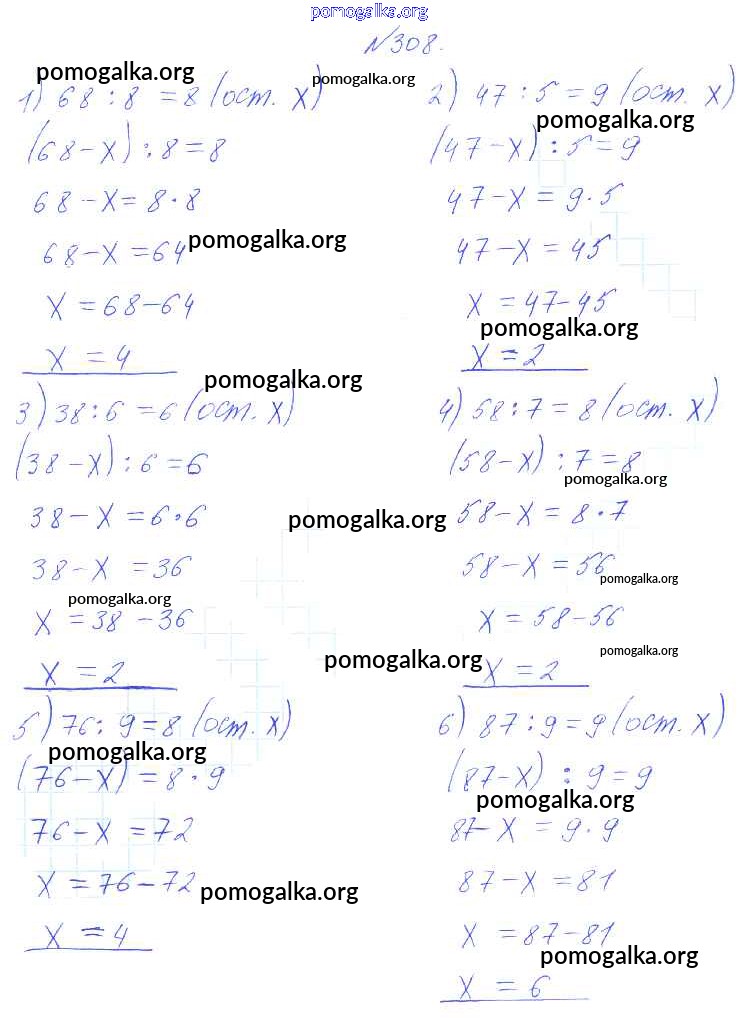 pomogalka.org
№308.
pomogalka.org
pomogalka.org
1) 68 : 8 = 8 (ост. x)
(68 - x) : 8 = 8
68 - x = 8 · 8
68 - x = 64
pomogalka.org
x = 68 - 64
x = 4
2) 47 : 5 = 9 (ост. x)
pomogalka.org
(47 - x) : 5 = 9
47 - x = 9 · 5
47 - x = 45
x = 47 - 45
pomogalka.org
x = 2
pomogalka.org
3) 38 : 6 = 6 (ост. x)
(38 - x) : 6 = 6
38 - x = 6 · 6
pomogalka.org
38 - x = 36
pomogalka.org
x = 38 - 36
x = 2
4) 58 : 7 = 8 (ост. x)
(58 - x) : 7 = 8
pomogalka.org
58 - x = 8 · 7
58 - x = 56
pomogalka.org
x = 58 - 56
pomogalka.org
pomogalka.org
x = 2
5) 76 : 9 = 8 (ост. x)
pomogalka.org
(76 - x) = 8 · 9
76 - x = 72
x = 76 - 72
pomogalka.org
x = 4
6) 87 : 9 = 9 (ост. x)
(87 - x) : 9 = 9
pomogalka.org
87 - x = 9 · 9
87 - x = 81
x = 87 - 81
pomogalka.org
x = 6